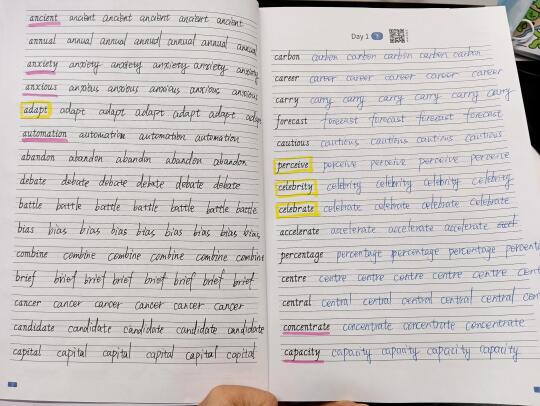 ancient ancient ancient ancient ancient ancient
annual annual annual annual annual annual annual
anxiety anxiety anxiety anxiety anxiety anxiety
anxious anxious anxious anxious anxious anxious
adapt adapt adapt adapt adapt adapt adapt
automation automation automation automation
abandon abandon abandon abandon abandon
debate debate debate debate debate debate
battle battle battle battle battle battle battle
bias bias bias bias bias bias bias bias bias
combine combine combine combine combine combine
brief brief brief brief brief brief brief brief
cancer cancer cancer cancer cancer cancer
candidate candidate candidate candidate candidate
capital capital capital capital capital capital
Day 1
carbon carbon carbon carbon carbon carbon
career career career career career career
carry carry carry carry carry carry carry
forecast forecast forecast forecast forecast
cautious cautious cautious cautious cautious
perceive perceive perceive perceive perceive
celebrity celebrity celebrity celebrity celebrity
celebrate celebrate celebrate celebrate celebrate
accelerate accelerate accelerate accelerate
percentage percentage percentage percentage
centre centre centre centre centre centre centre
central central central central central central
concentrate concentrate concentrate concentrate
capacity capacity capacity capacity capacity